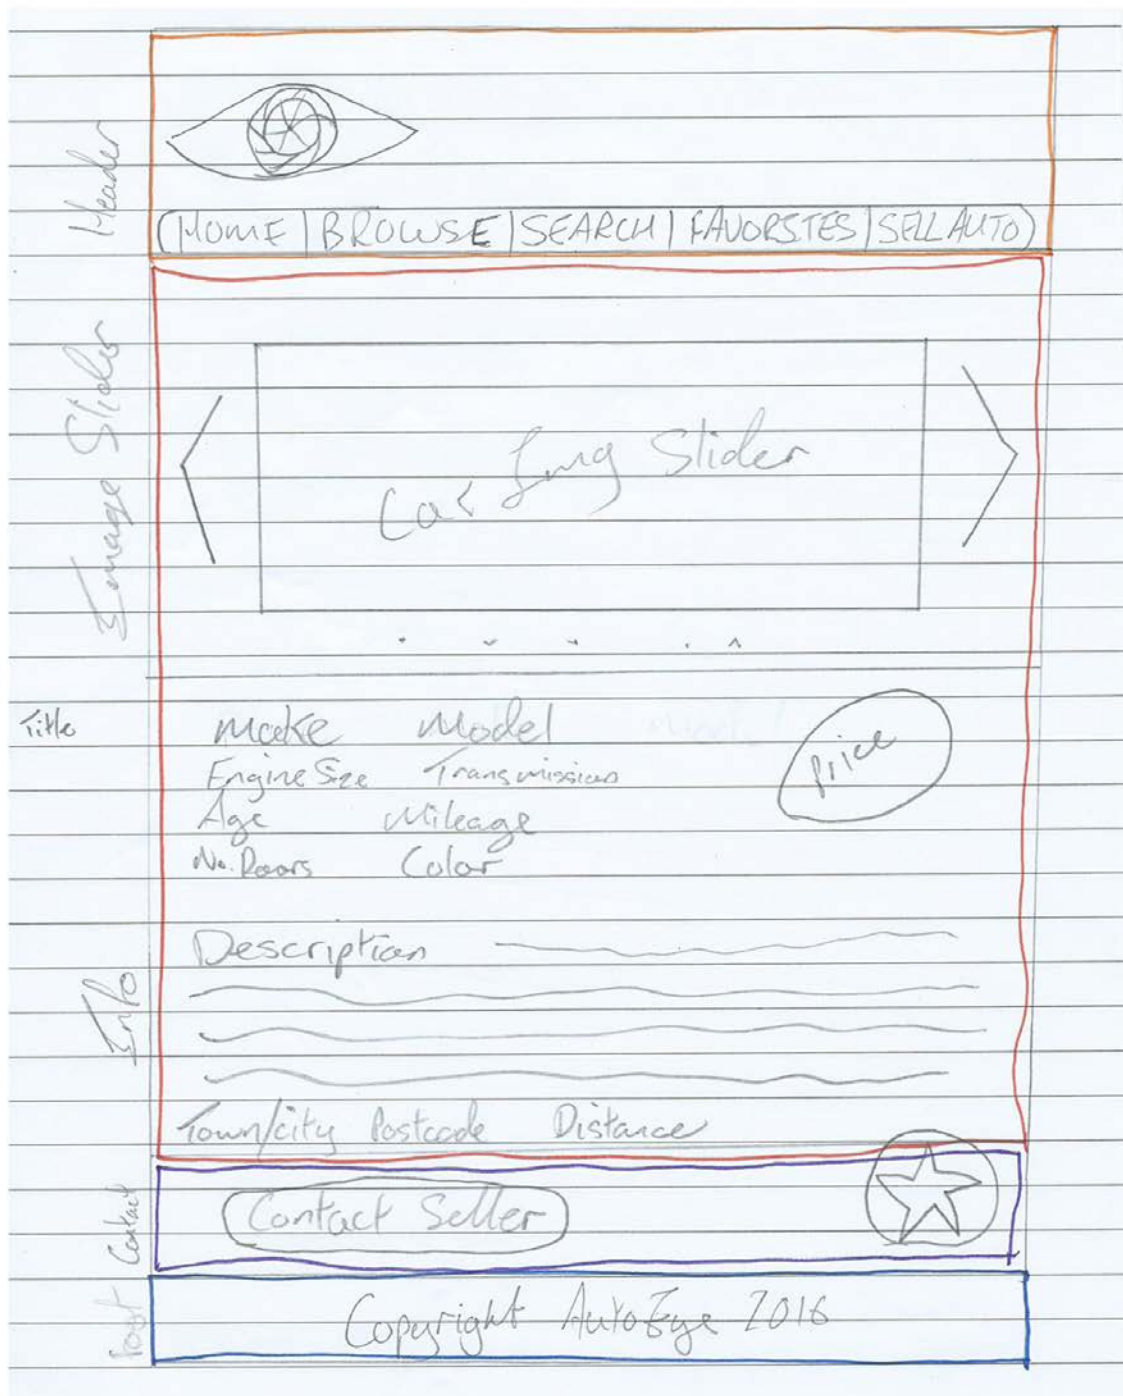 Header
(HOME | BROWSE | SEARCH | FAVORITES | SELL AUTO)
Image Slider
Car Img Slider
Title
Make Model
Price
Engine Size Transmission
Age Mileage
No. Doors Color
Info
Description
Town/city Postcode Distance
Contact
Contact Seller
Foot
Copyright AutoEye 2016